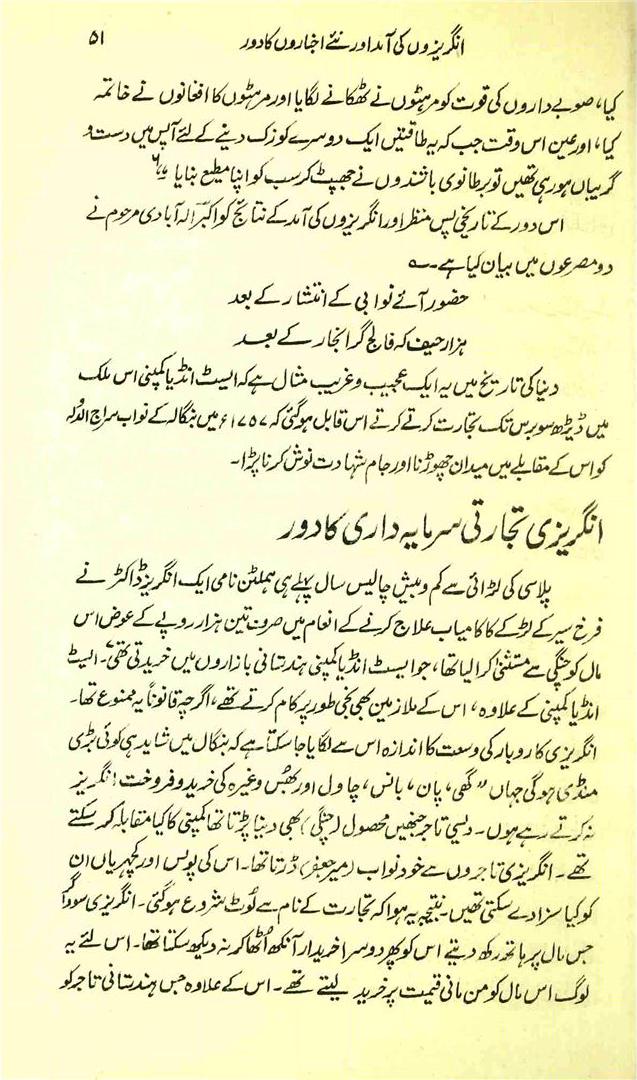 انگریزوں کی آمد اور نئے اخباروں کا دور ۵۱
کیا، صوبے داروں کی قوت کو مرہٹوں نے ٹھکانے لگایا اور مرہٹوں کا افغانوں نے خاتمہ
کیا، اور عین اس وقت جب کہ یہ طاقتیں ایک دوسرے کو زک دینے کے لئے آپس میں دست و
گریباں ہو رہی تھیں تو برطانوی باشندوں نے جھپٹ کر سب کو اپنا مطیع بنایا
اس دور کے تاریخی پس منظر اور انگریزوں کی آمد کے نتائج کو اکبر الہ آبادی مرحوم نے
دو مصرعوں میں بیان کیا ہے۔
حضور آئے نوابی کے انتشار کے بعد
ہزار حیف کہ فالج گرا بخار کے بعد
دنیا کی تاریخ میں یہ ایک عجیب و غریب مثال ہے کہ ایسٹ انڈیا کمپنی اس ملک
میں ڈیڑھ سو برس تک تجارت کرتے کرتے اس قابل ہو گئی کہ ۱۷۵۷ء میں بنگالہ کے نواب سراج الدولہ
کو اس کے مقابلے میں میدان چھوڑنا اور جام شہادت نوش کرنا پڑا۔
انگریزی تجارتی سرمایہ داری کا دور
پلاسی کی لڑائی سے کم و بیش چالیس سال پہلے ہی ہملٹن نامی ایک انگریز ڈاکٹر نے
فرخ سیر کے لڑکے کا کامیاب علاج کرنے کے انعام میں صرف تین ہزار روپے کے عوض اس
مال کو چنگی سے مستثنیٰ کرا لیا تھا، جو ایسٹ انڈیا کمپنی ہندستانی بازاروں میں خریدتی تھی۷۔ ایسٹ
انڈیا کمپنی کے علاوہ، اس کے ملازمین بھی نجی طور پر کام کرتے تھے، اگرچہ قانوناً یہ ممنوع تھا۔
انگریزی کاروبار کی وسعت کا اندازہ اس سے لگایا جا سکتا ہے کہ بنگال میں شاید ہی کوئی بڑی
منڈی ہو گی جہاں "گھی، پان، بانس، چاول اور بھُس وغیرہ کی خرید و فروخت انگریز
نہ کرتے رہے ہوں۔ دیسی تاجر جنھیں محصول (چنگی) بھی دینا پڑتا تھا کمپنی کا کیا مقابلہ کر سکتے
تھے۔ انگریزی تاجروں سے خود نواب (میر جعفر) ڈرتا تھا۔ اس کی پولس اور کچہریاں ان
کو کیا سزا دے سکتی تھیں۔ نتیجہ یہ ہوا کہ تجارت کے نام سے لُوٹ شروع ہو گئی۔ انگریزی سوداگر
جس مال پر ہاتھ رکھ دیتے اس کو پھر دوسرا خریدار آنکھ اُٹھا کر نہ دیکھ سکتا تھا۔ اس لئے یہ
لوگ اس مال کو من مانی قیمت پر خرید لیتے تھے۔ اس کے علاوہ جس ہندستانی تاجر کو